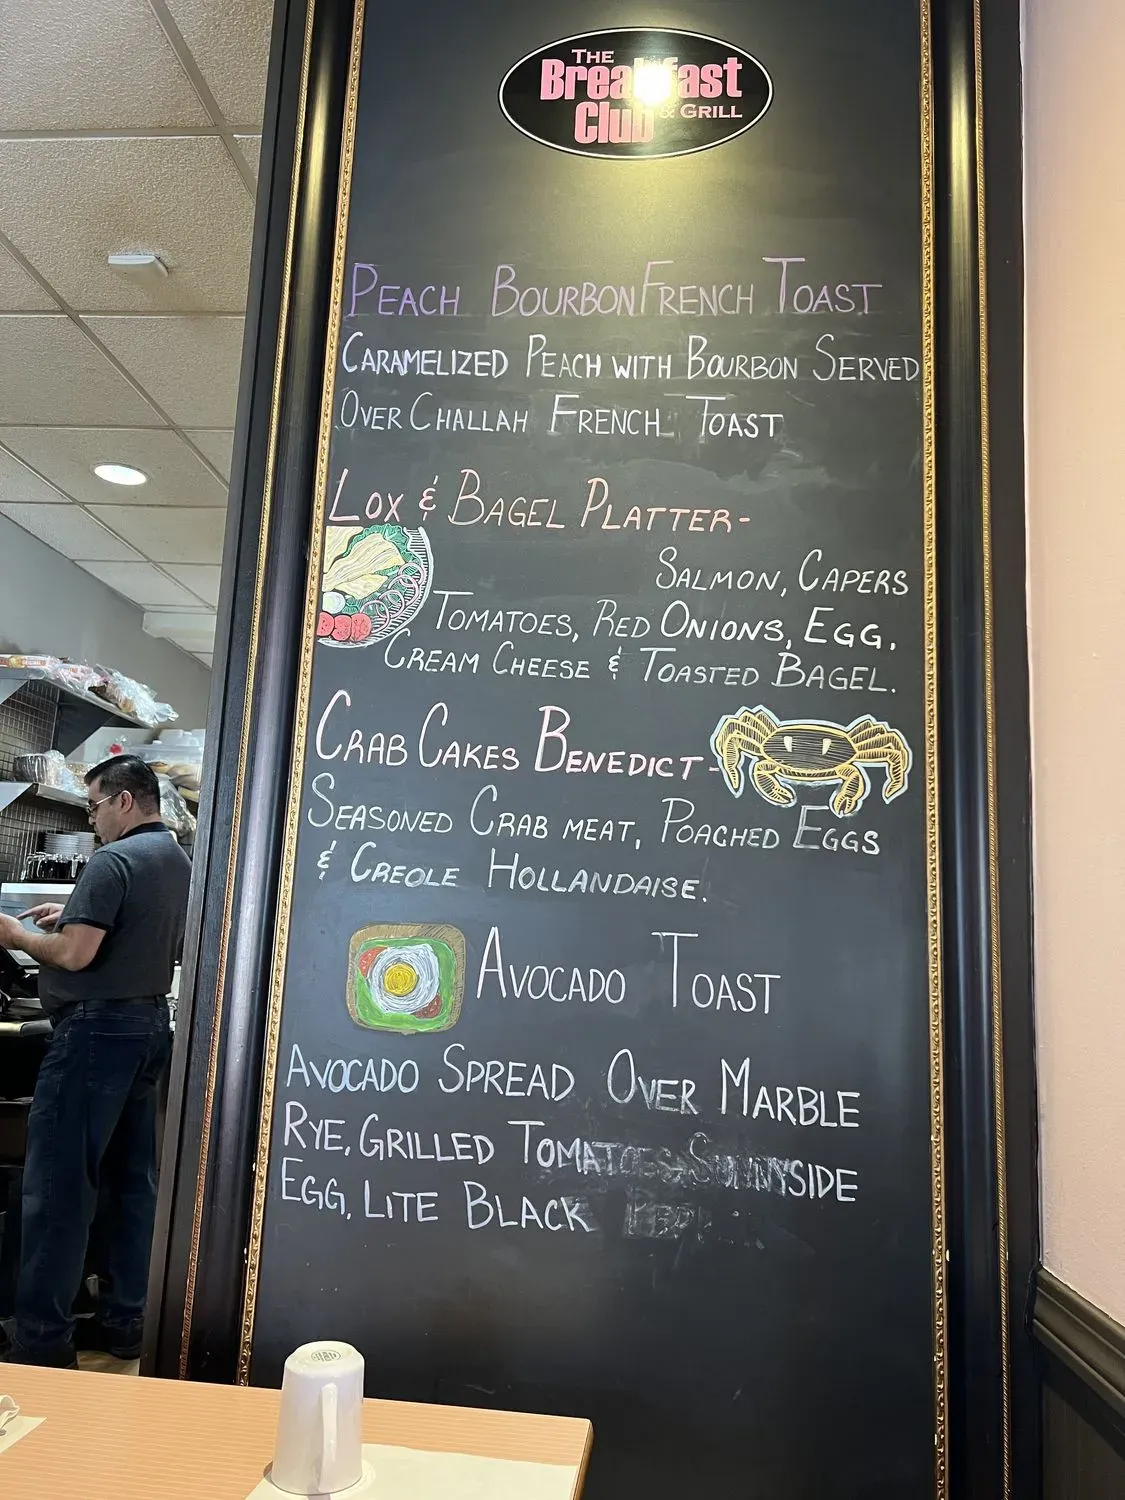 THE
Breakfast
Club & GRILL
PEACH BOURBON FRENCH TOAST
CARAMELIZED PEACH WITH BOURBON SERVED
OVER CHALLAH FRENCH TOAST
LOX & BAGEL PLATTER-
SALMON, CAPERS
TOMATOES, RED ONIONS, EGG,
CREAM CHEESE & TOASTED BAGEL.
CRAB CAKES BENEDICT-
SEASONED CRAB MEAT, POACHED EGGS
& CREOLE HOLLANDAISE.
AVOCADO TOAST
AVOCADO SPREAD OVER MARBLE
RYE, GRILLED TOMATOES SUNNYSIDE
EGG, LITE BLACK